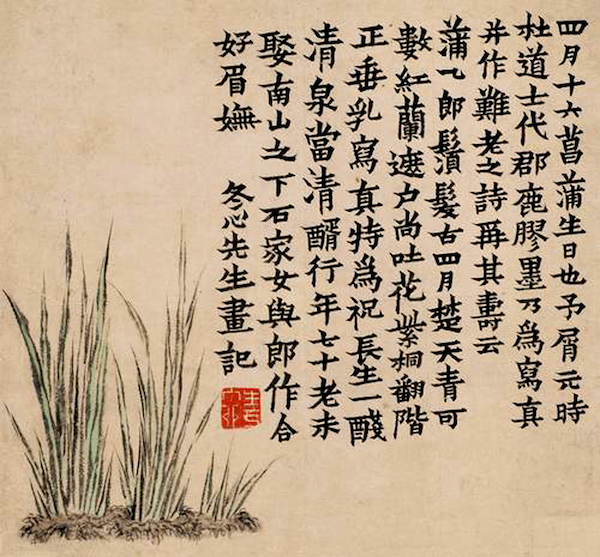 四月十六菖蒲生日也予屑元時
杜道士代郡鹿膠墨乃為寫真
并作難老之詩爯其壽云
蒲郎鬚髮古四月楚天青可
數紅蘭遮户尚吐花紫桐翻階
正垂乳寫真特為祝長生一醆
清泉當清醑行年七十老未
娶南山之下石家女與郎作合
好眉嫵
冬心先生畫記